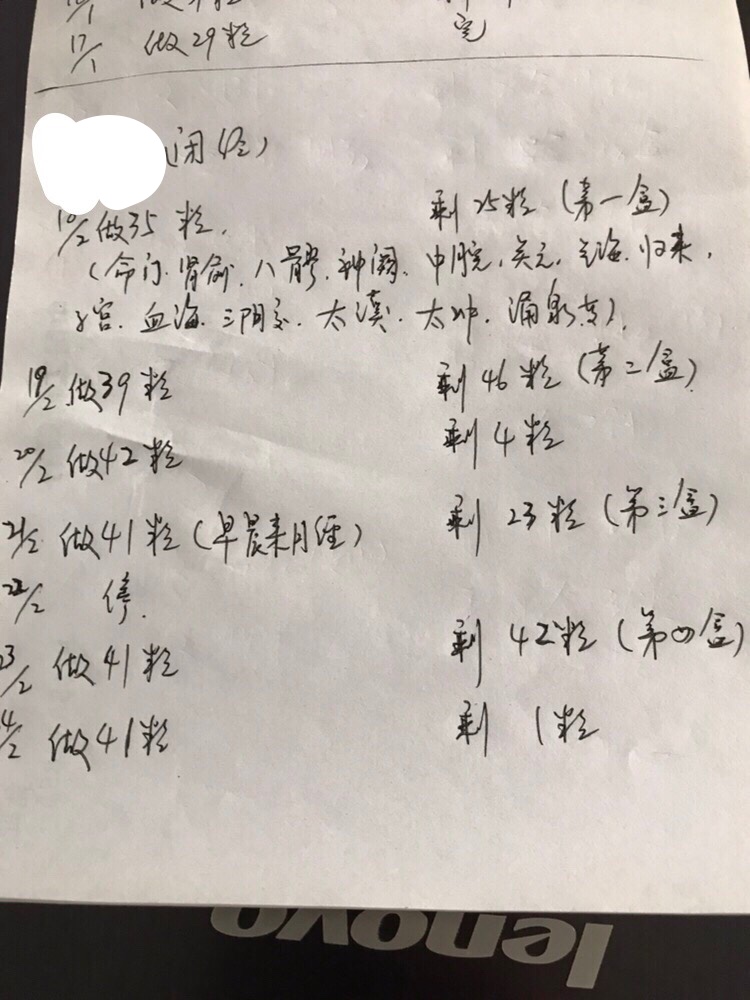 17/1 做29粒 完
(闭经)
18/2 做35粒. 剩25粒(第一盒)
(命门.肾俞.八髎.神阙.中脘.关元.气海.归来.
子宫.血海.三阴交.太溪.太冲.涌泉等).
19/2 做39粒 剩46粒(第二盒)
20/2 做42粒 剩4粒
21/2 做41粒(早晨来月经) 剩23粒(第三盒)
22/2 停.
23/2 做41粒 剩42粒(第四盒)
4/2 做41粒 剩1粒
lenovo